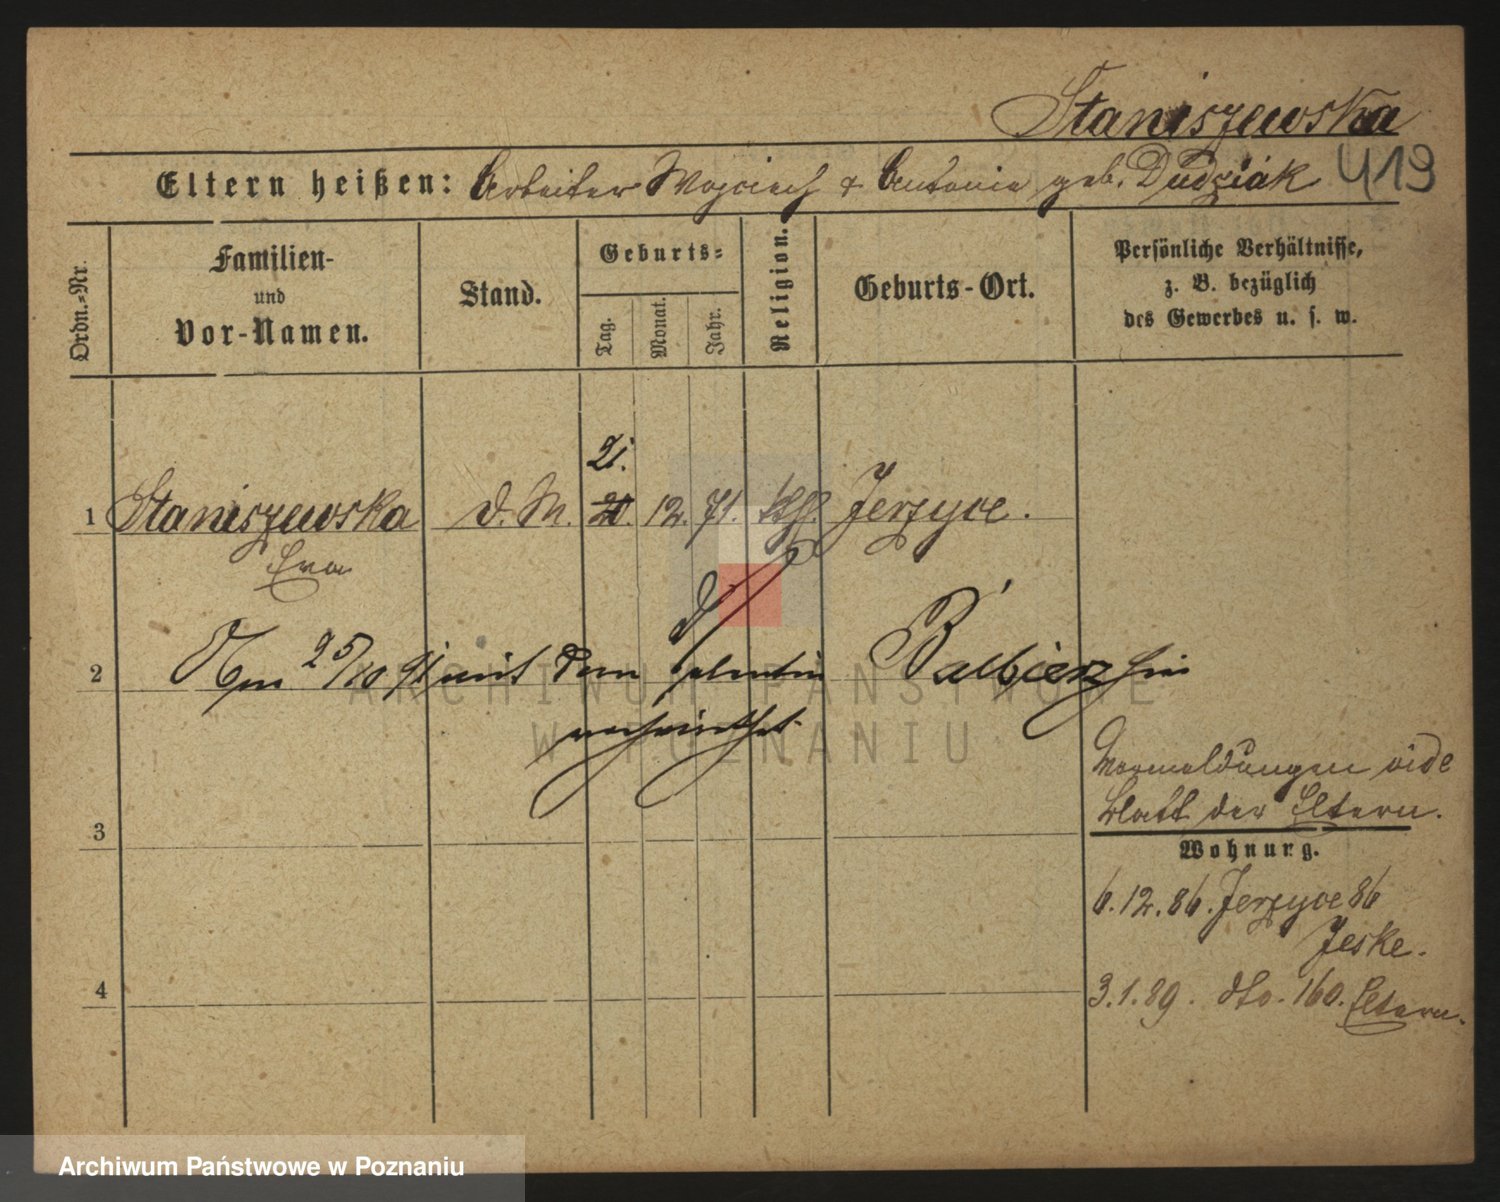 Staniszewska
Eltern heißen: Arbeiter Wojciech & Antonie geb. Dudziak 419
Ordn.-Nr.
Familien-
und
Vor-Namen.
Stand.
Geburts-
Tag.
Monat.
Jahr.
Religion.
Geburts-Ort.
Persönliche Verhältnisse,
z. B. bezüglich
des Gewerbes u. s. w.
21.
1 Staniszewska d. M. 20. 12. 71. kth. Jerzyce.
Eva
2 Am 25/10 91 mit dem Balbierz hier
verheirathet
Vormeldungen vide
Blatt der Eltern.
3
Wohnung.
6.12.86. Jerzyce 86
Jeske.
4 3.1.89. dto. 160. Eltern.
ARCHIWUM PAŃSTWOWE
W POZNANIU
Archiwum Państwowe w Poznaniu